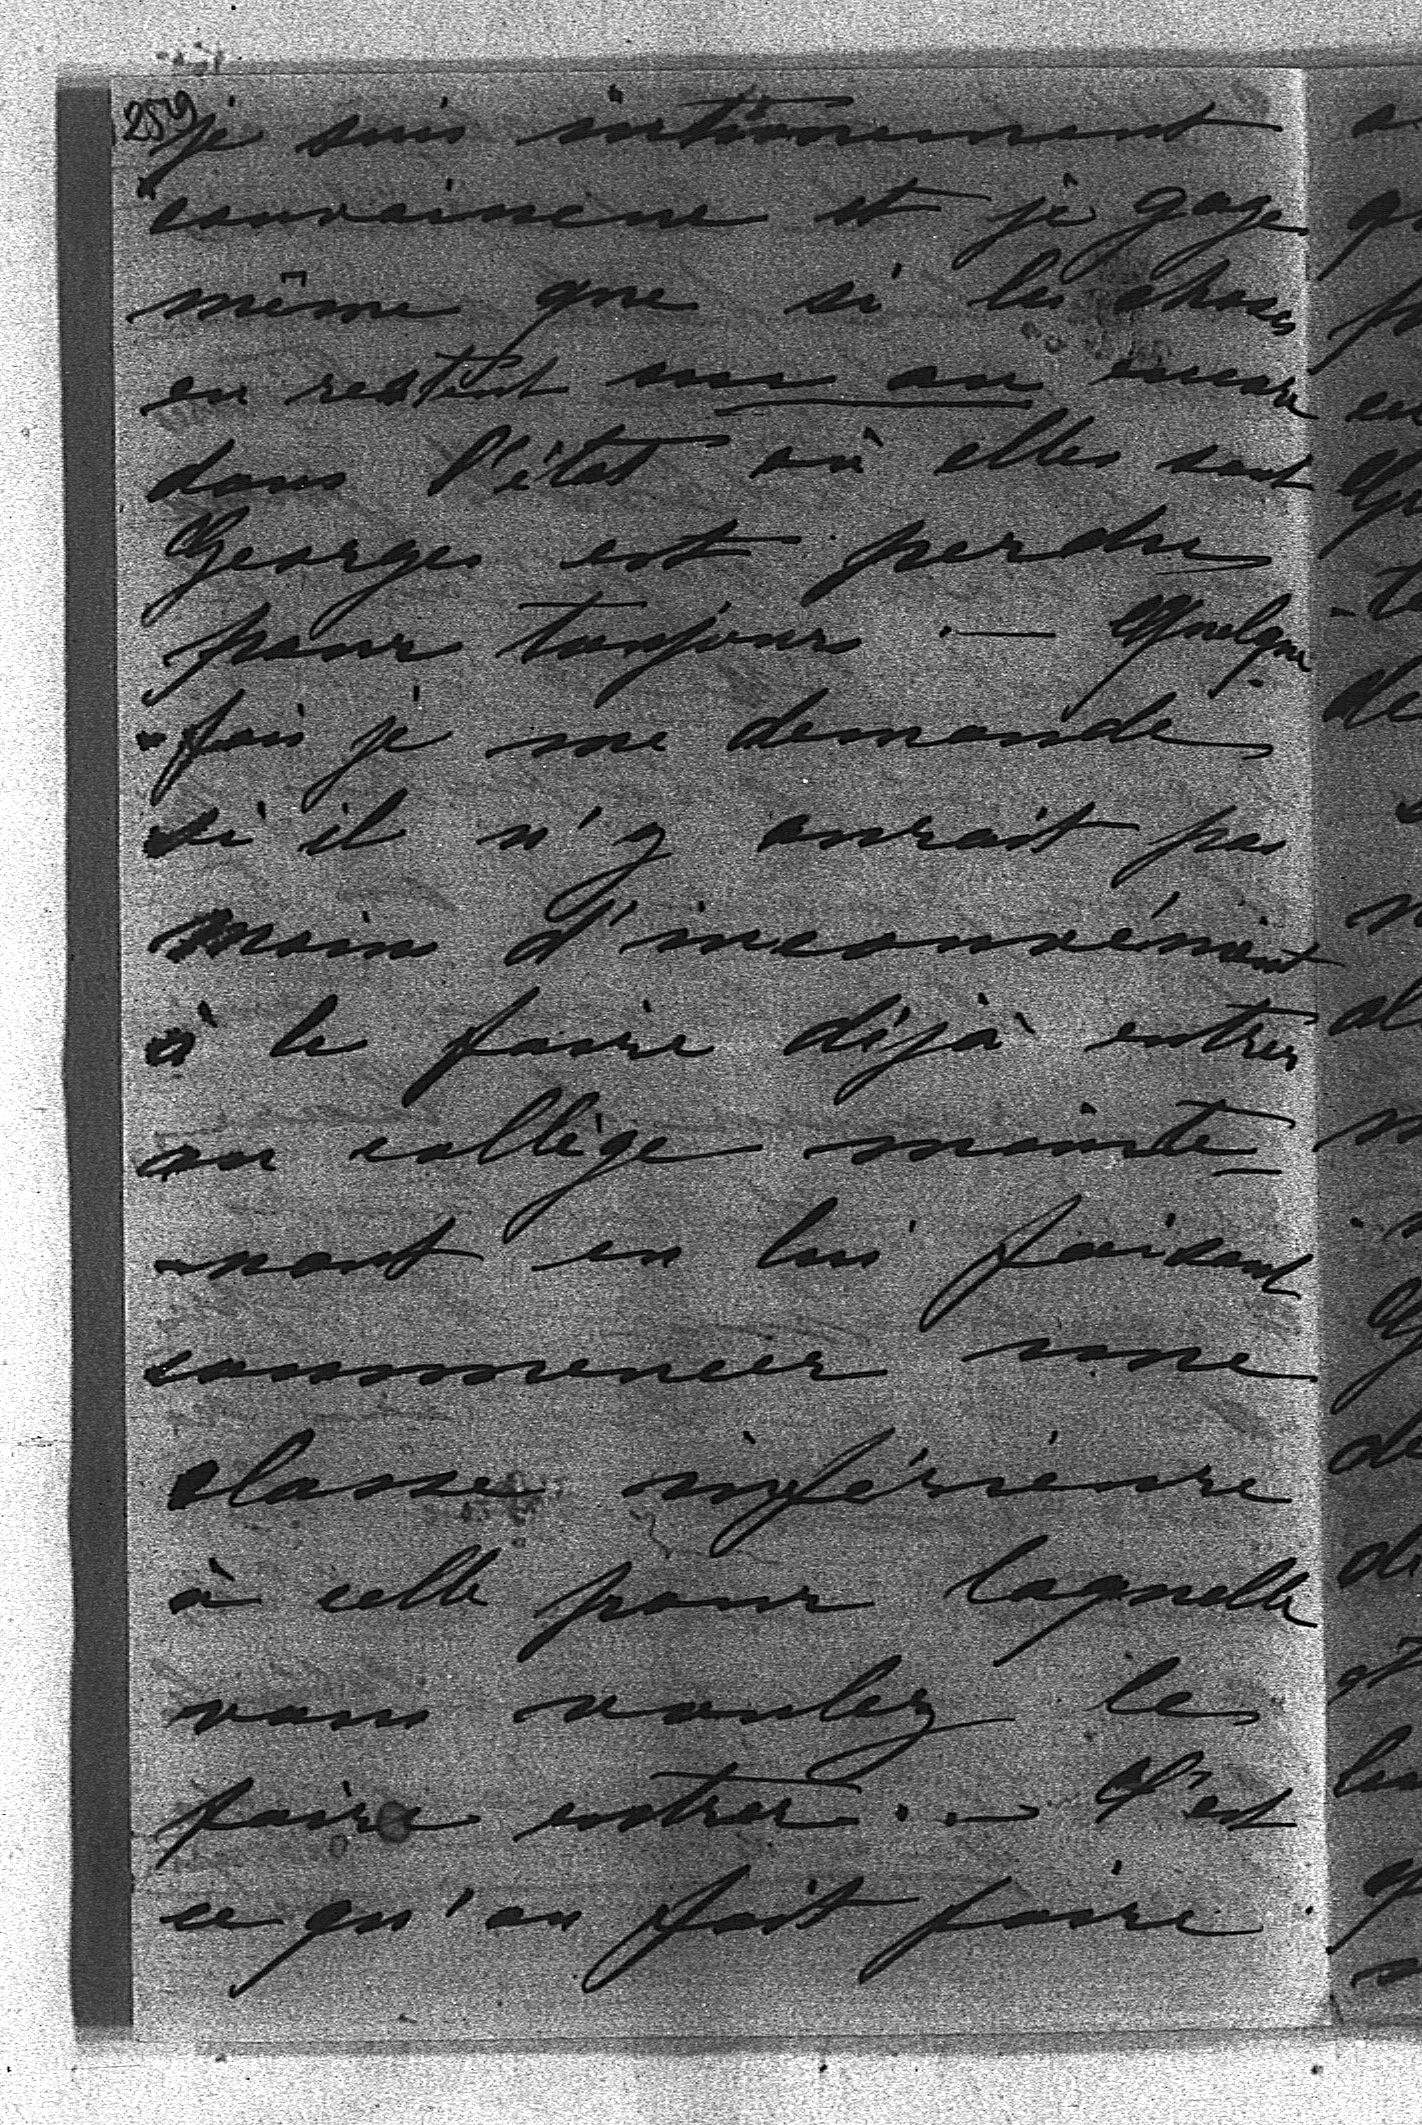 259
je suis intimement
convaincue et je gage
même que si les choses
en restent un an encore
dans l'état où elles sont
Georges est perdu
pour toujours. — Quelque-
-fois je me demande
si il n'y aurait pas
moins d'inconvénient
à le faire déjà entrer
au collège mainte-
-nant en lui faisant
commencer une
classe inférieure
à celle pour laquelle
vous voulez le
faire entrer. — C'est
ce qu'on fait faire